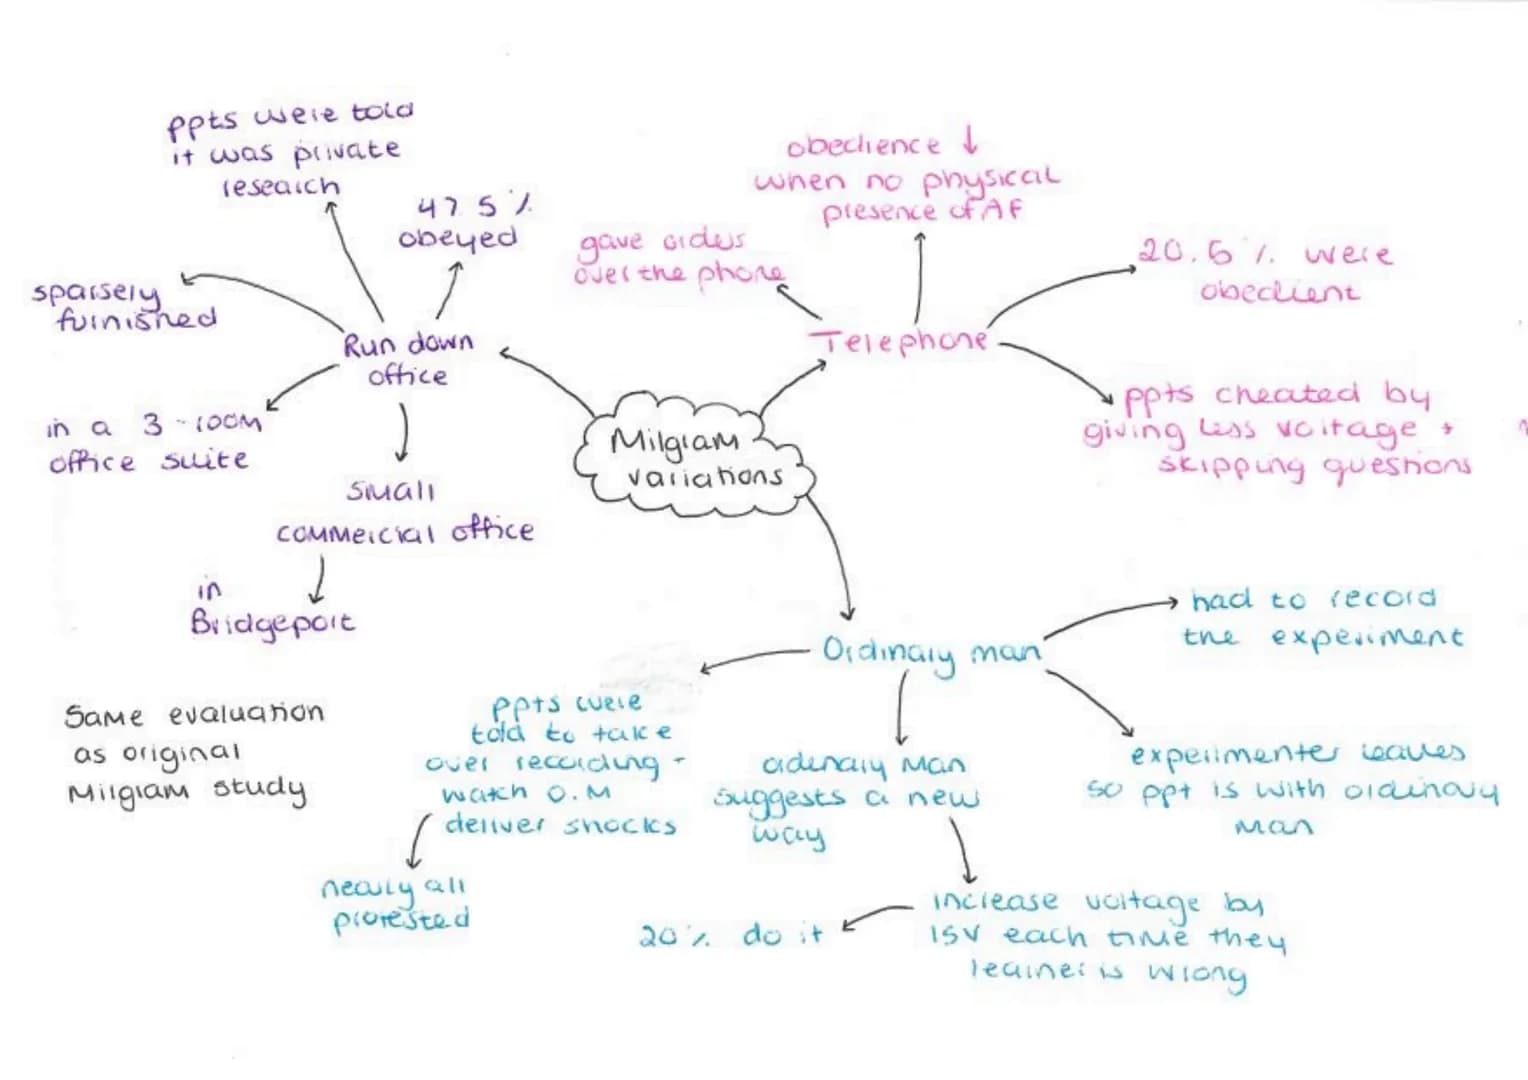 Milgram
variations
Run down
office
ppts were told
it was private
research
47.5%
obeyed
sparsely
furnished
in a 3-room
office suite
small
commercial office
in
Bridgeport
Telephone
gave orders
over the phone
obedience ↓
when no physical
presence of AF
20.5% were
obedient
ppts cheated by
giving less voltage +
skipping questions
Ordinary man
had to record
the experiment
experimenter leaves
so ppt is with ordinary
man
ordenary man
suggests a new
way
increase voltage by
15V each time they
learner is wrong
20% do it
ppts were
told to take
over recording -
watch O.M
deliver shocks
nearly all
protested
Same evaluation
as original
Milgram study